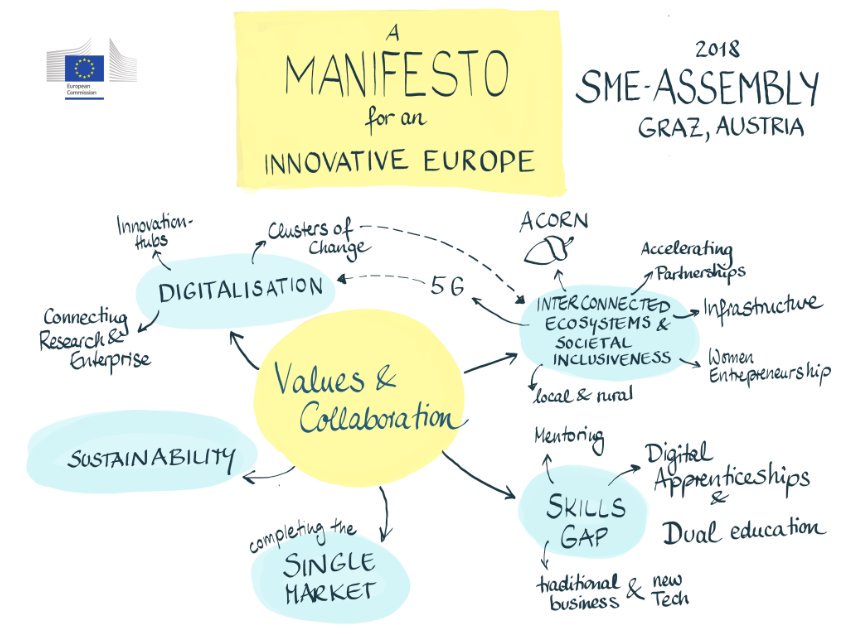 European
Commission
A
MANIFESTO
for an
INNOVATIVE EUROPE
2018
SME-ASSEMBLY
GRAZ, AUSTRIA
Innovation-
Hubs
Clusters of
Change
DIGITALISATION
Connecting
Research &
Enterprise
5G
ACORN
Accelerating
Partnerships
INTERCONNECTED
ECOSYSTEMS &
SOCIETAL
INCLUSIVENESS
Infrastructure
Women
Entrepreneurship
local & rural
Values &
Collaboration
SUSTAINABILITY
completing the
SINGLE
MARKET
Mentoring
Digital
Apprenticeships
&
Dual education
SKILLS
GAP
traditional & new
business Tech